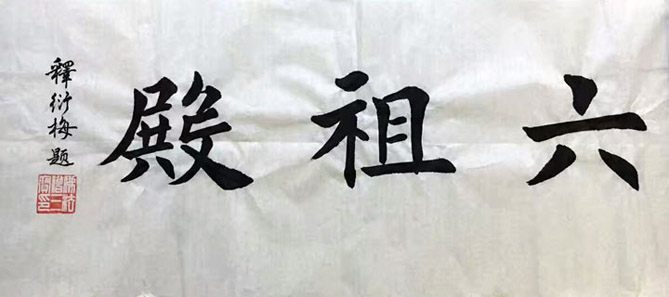 六祖殿
釋衍梅題